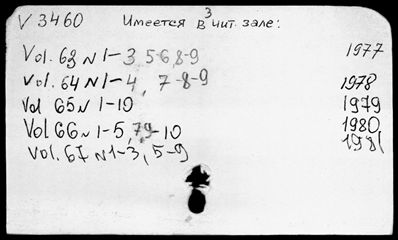 V 3460 Имеется в 3 чит. зале:
Vol. 63 N 1-3, 5-6, 8-9 1977
Vol. 64 N 1-4, 7-8-9 1978
Vol 65 N 1-10 1979
Vol 66 N 1-5, 79-10 1980
Vol. 67 N 1-3, 5-9 1981